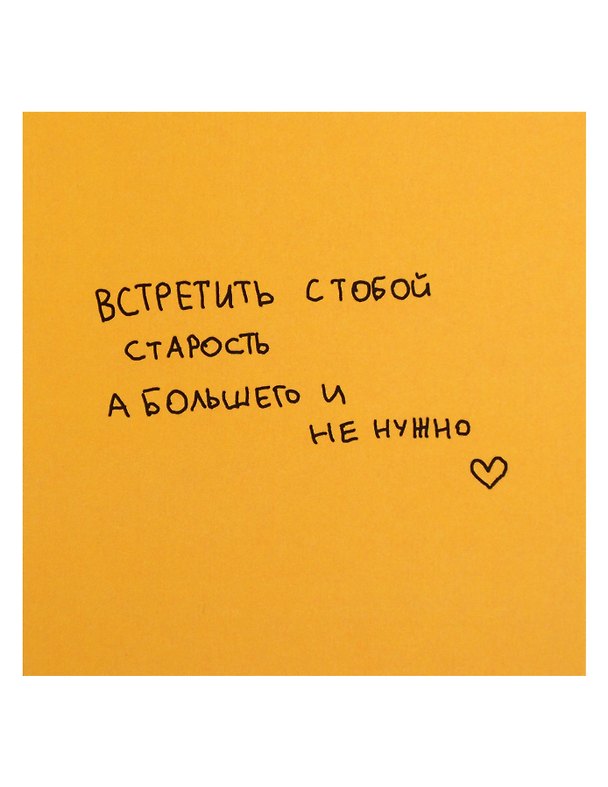 ВСТРЕТИТЬ С ТОБОЙ
СТАРОСТЬ
А БОЛЬШЕГО И
НЕ НУЖНО